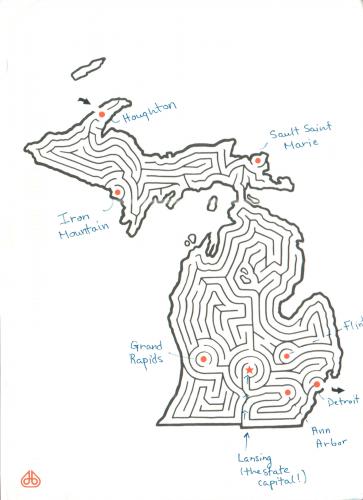 Houghton
Sault Saint
Marie
Iron
Mountain
Grand
Rapids
Flin
Detroit
Ann
Arbor
Lansing
(the state
capital!)
db